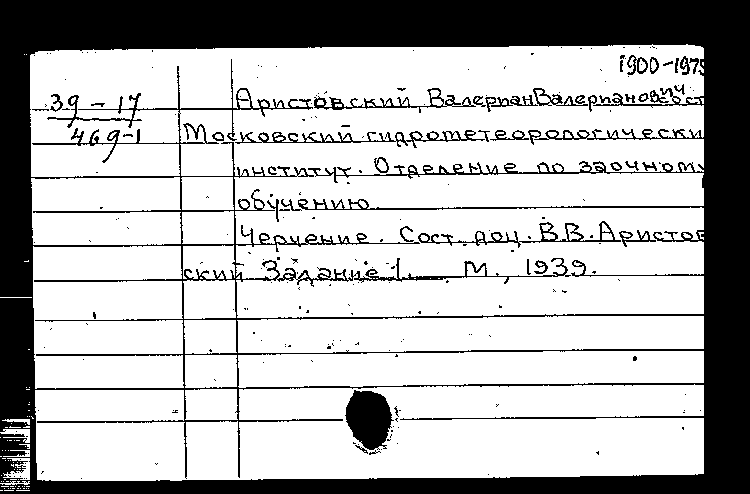 1900-1975
39-17
469-1
Аристовский, Валериан Валерианович, ост
Московский гидрометеорологически
институт. Отделение по заочному
обучению.
Черчение. Сост. доц. В.В. Аристов
ский Задание 1. М., 1939.